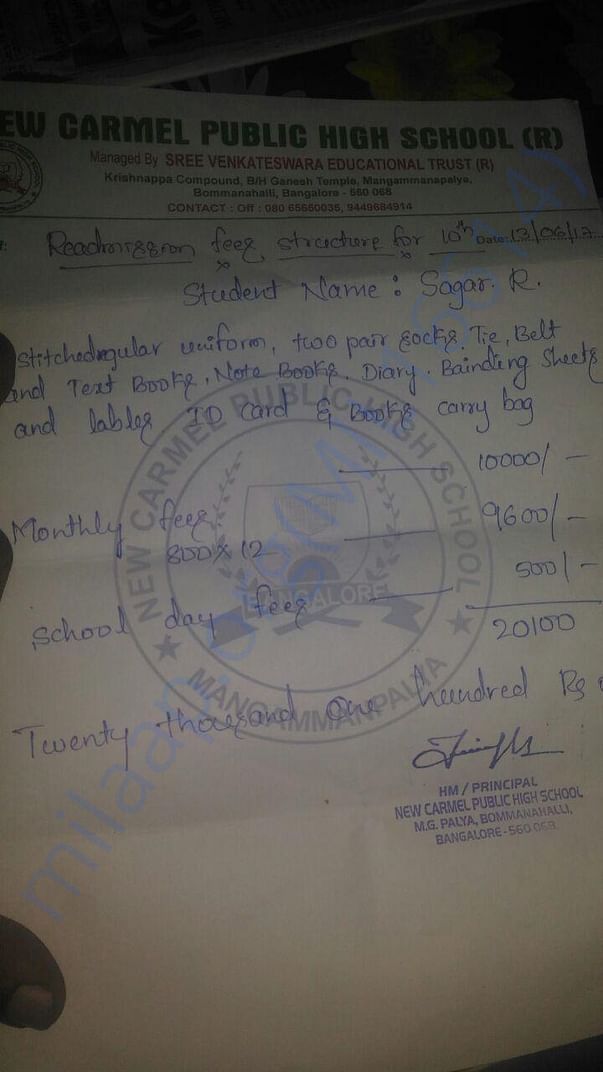 EW CARMEL PUBLIC HIGH SCHOOL (R)
Managed By SREE VENKATESWARA EDUCATIONAL TRUST (R)
Krishnappa Compound, B/H Ganesh Temple, Mangammanapalya,
Bommanahalli, Bangalore - 560 068
CONTACT : Off : 080 65650035, 9449684914
Readmission fees structure for 10th Date: 13/06/17
Student Name : Sagar. R.
stitched regular uniform, two pair socks, Tie, Belt
and Text Books, Note Books, Diary, Bainding Sheets
and lables ID card & Books carry bag
10000/-
Monthly fees
800 x 12 9600/-
School day fees 500/-
20100
Twenty thousand One hundred Rs
HM / PRINCIPAL
NEW CARMEL PUBLIC HIGH SCHOOL
M.G. PALYA, BOMMANAHALLI,
BANGALORE - 560 068.
NEW CARMEL PUBLIC HIGH SCHOOL
BANGALORE
MANGAMMANPALYA
milaap.org